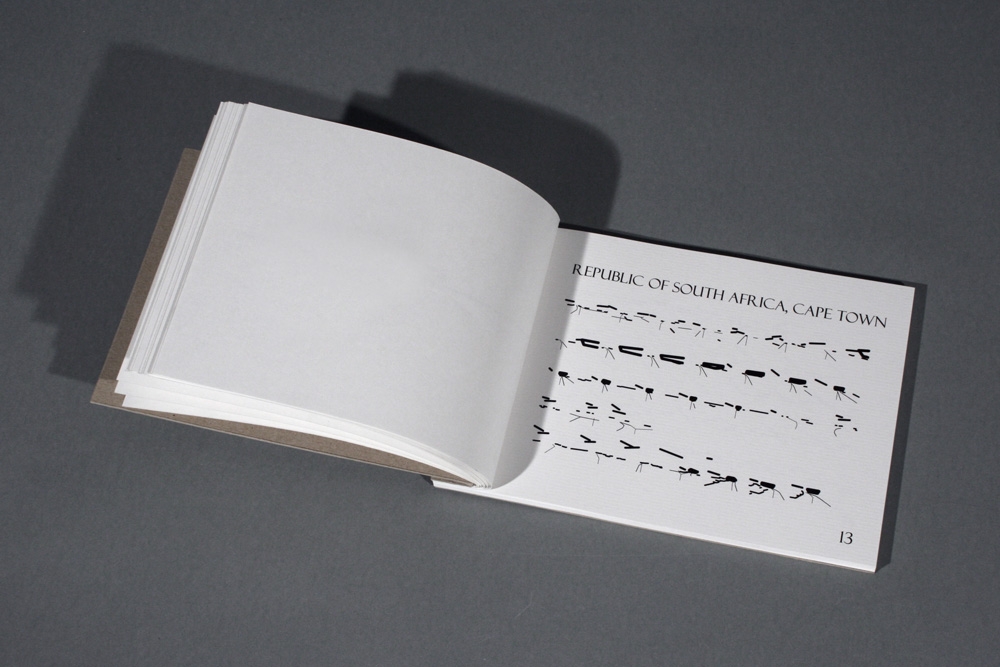 REPUBLIC OF SOUTH AFRICA, CAPE TOWN
13